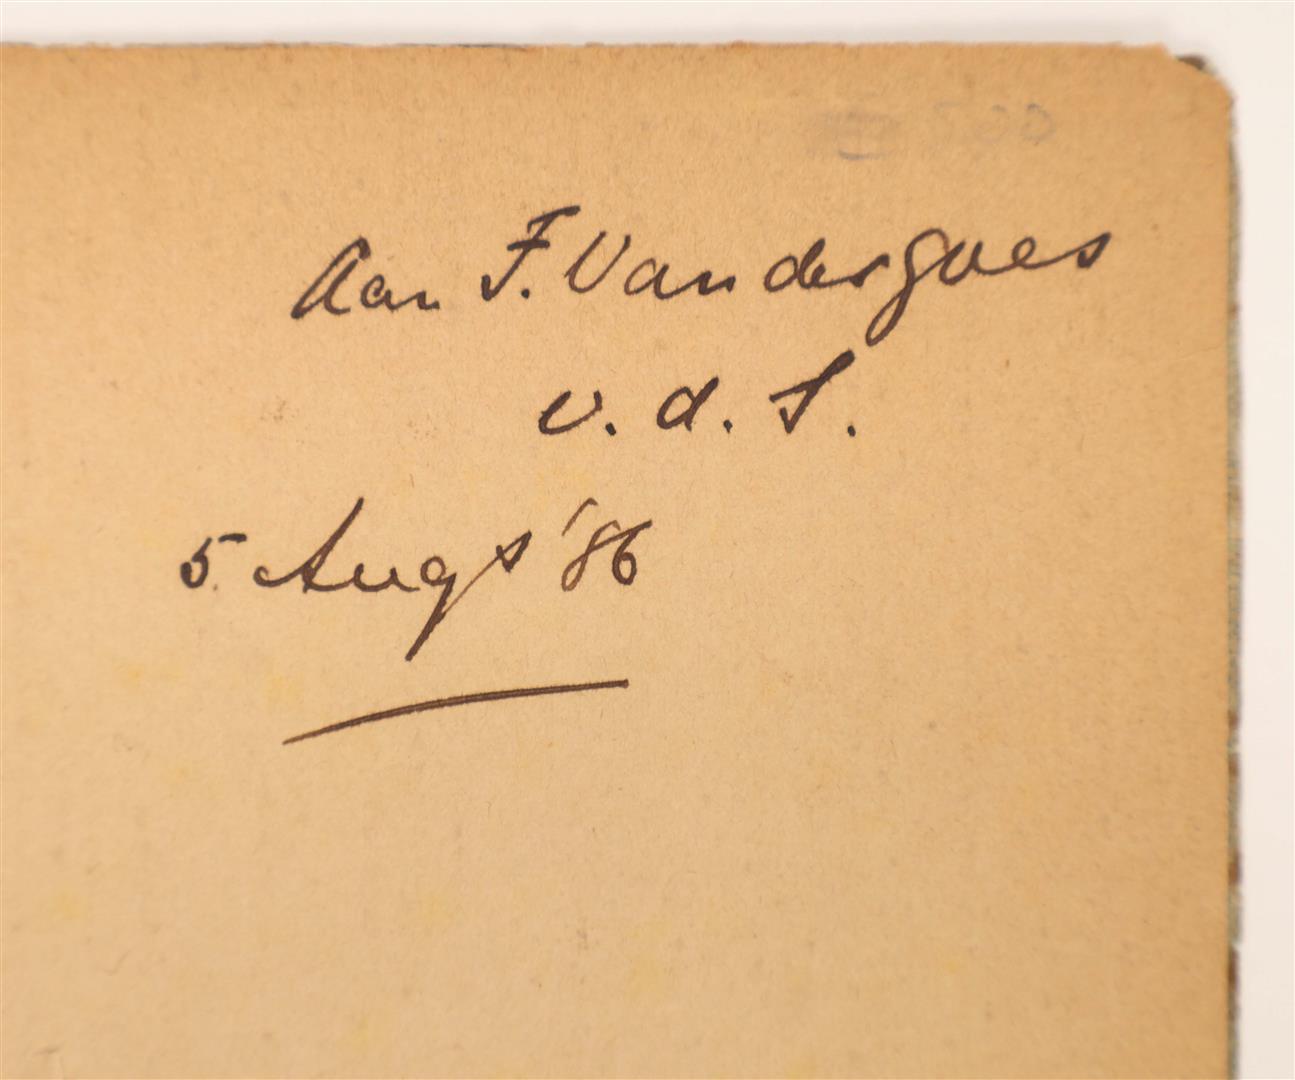 Aan F. Vandergoes
v. d. S.
5 Augs '86